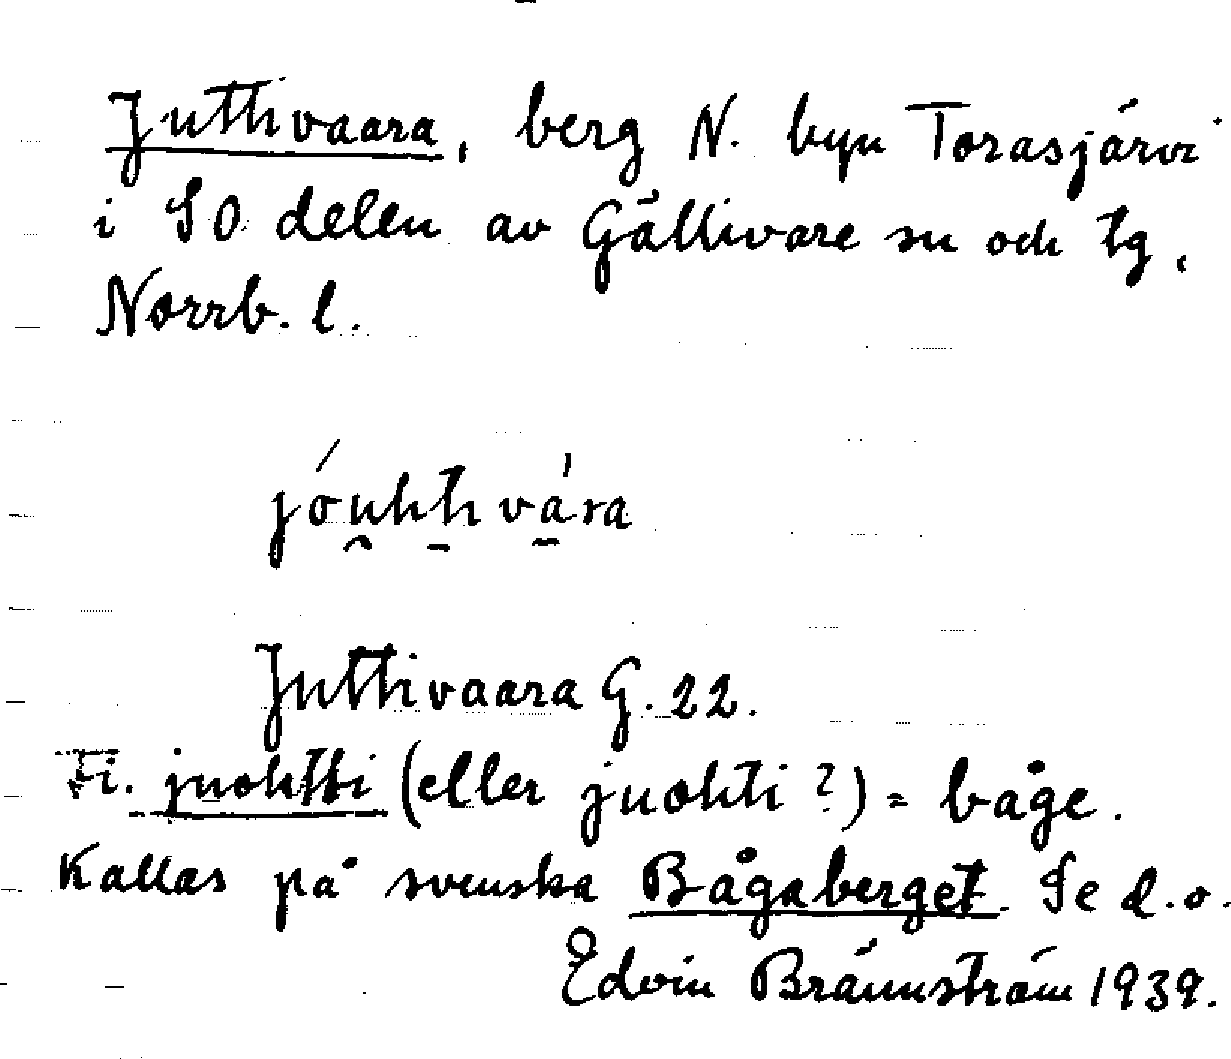 Juttivaara, berg N. byn Torasjärvi
i SO delen av Gällivare sn och tg,
Norrb. l.
jóu̯hti̱vá̱ra
Juttivaara G. 22.
Fi. juohtti (eller juohti?) = båge.
Kallas på svenska Bågaberget. Se d.o.
Edvin Brännström 1939.